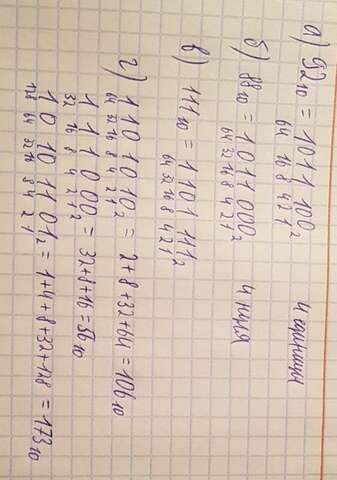 а) 92₁₀ = 1011100₂ 4 единицы
64 16 8 4 2 1
б) 88₁₀ = 1011000₂ 4 нуля
64 32 16 8 4 2 1
в) 111₁₀ = 1101111₂
64 32 16 8 4 2 1
г) 1101010₂ = 2+8+32+64 = 106₁₀
64 32 16 8 4 2 1
111000₂ = 32+8+16 = 56₁₀
32 16 8 4 2 1
10101101₂ = 1+4+8+32+128 = 173₁₀
128 64 32 16 8 4 2 1